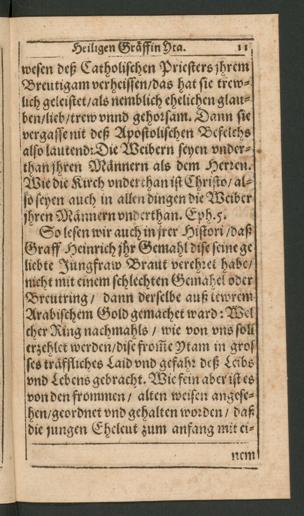 Heiligen Gräffin Yta. 11
wesen deß Catholischen Priesters jhrem
Breutigam verheissen/das hat sie trew-
lich geleistet/als nemblich ehelichen glau-
ben/lieb/trew vnnd gehorsam. Dann sie
vergasse nit deß Apostolischen Befelchs
also lautend: Die Weibern seyen vnder-
than jhren Männern als dem Herren.
Wie die Kirch vnderthan ist Christo/ al-
so seyen auch in allen dingen die Weiber
jhren Männern vnderthan. Eph. 5.
So lesen wir auch in jrer Histori/daß
Graff Heinrich jhr Gemahl dise seine ge
liebte Jungfraw Braut verehret habe/
nicht mit einem schlechten Gemahel oder
Breutring/ dann derselbe auß tewrem
Arabischem Gold gemachet ward: Wel
cher Ring nachmahls/ wie von vns soll
erzehlet werden/dise from̃e Ytam in gros
ses träffliches Laid vnd gefahr deß Leibs
vnd Lebens gebracht. Wie fein aber ist es
von den frommen/ alten weisen angese-
hen/geordnet vnd gehalten worden/ daß
die jungen Eheleut zum anfang mit ei-
nem